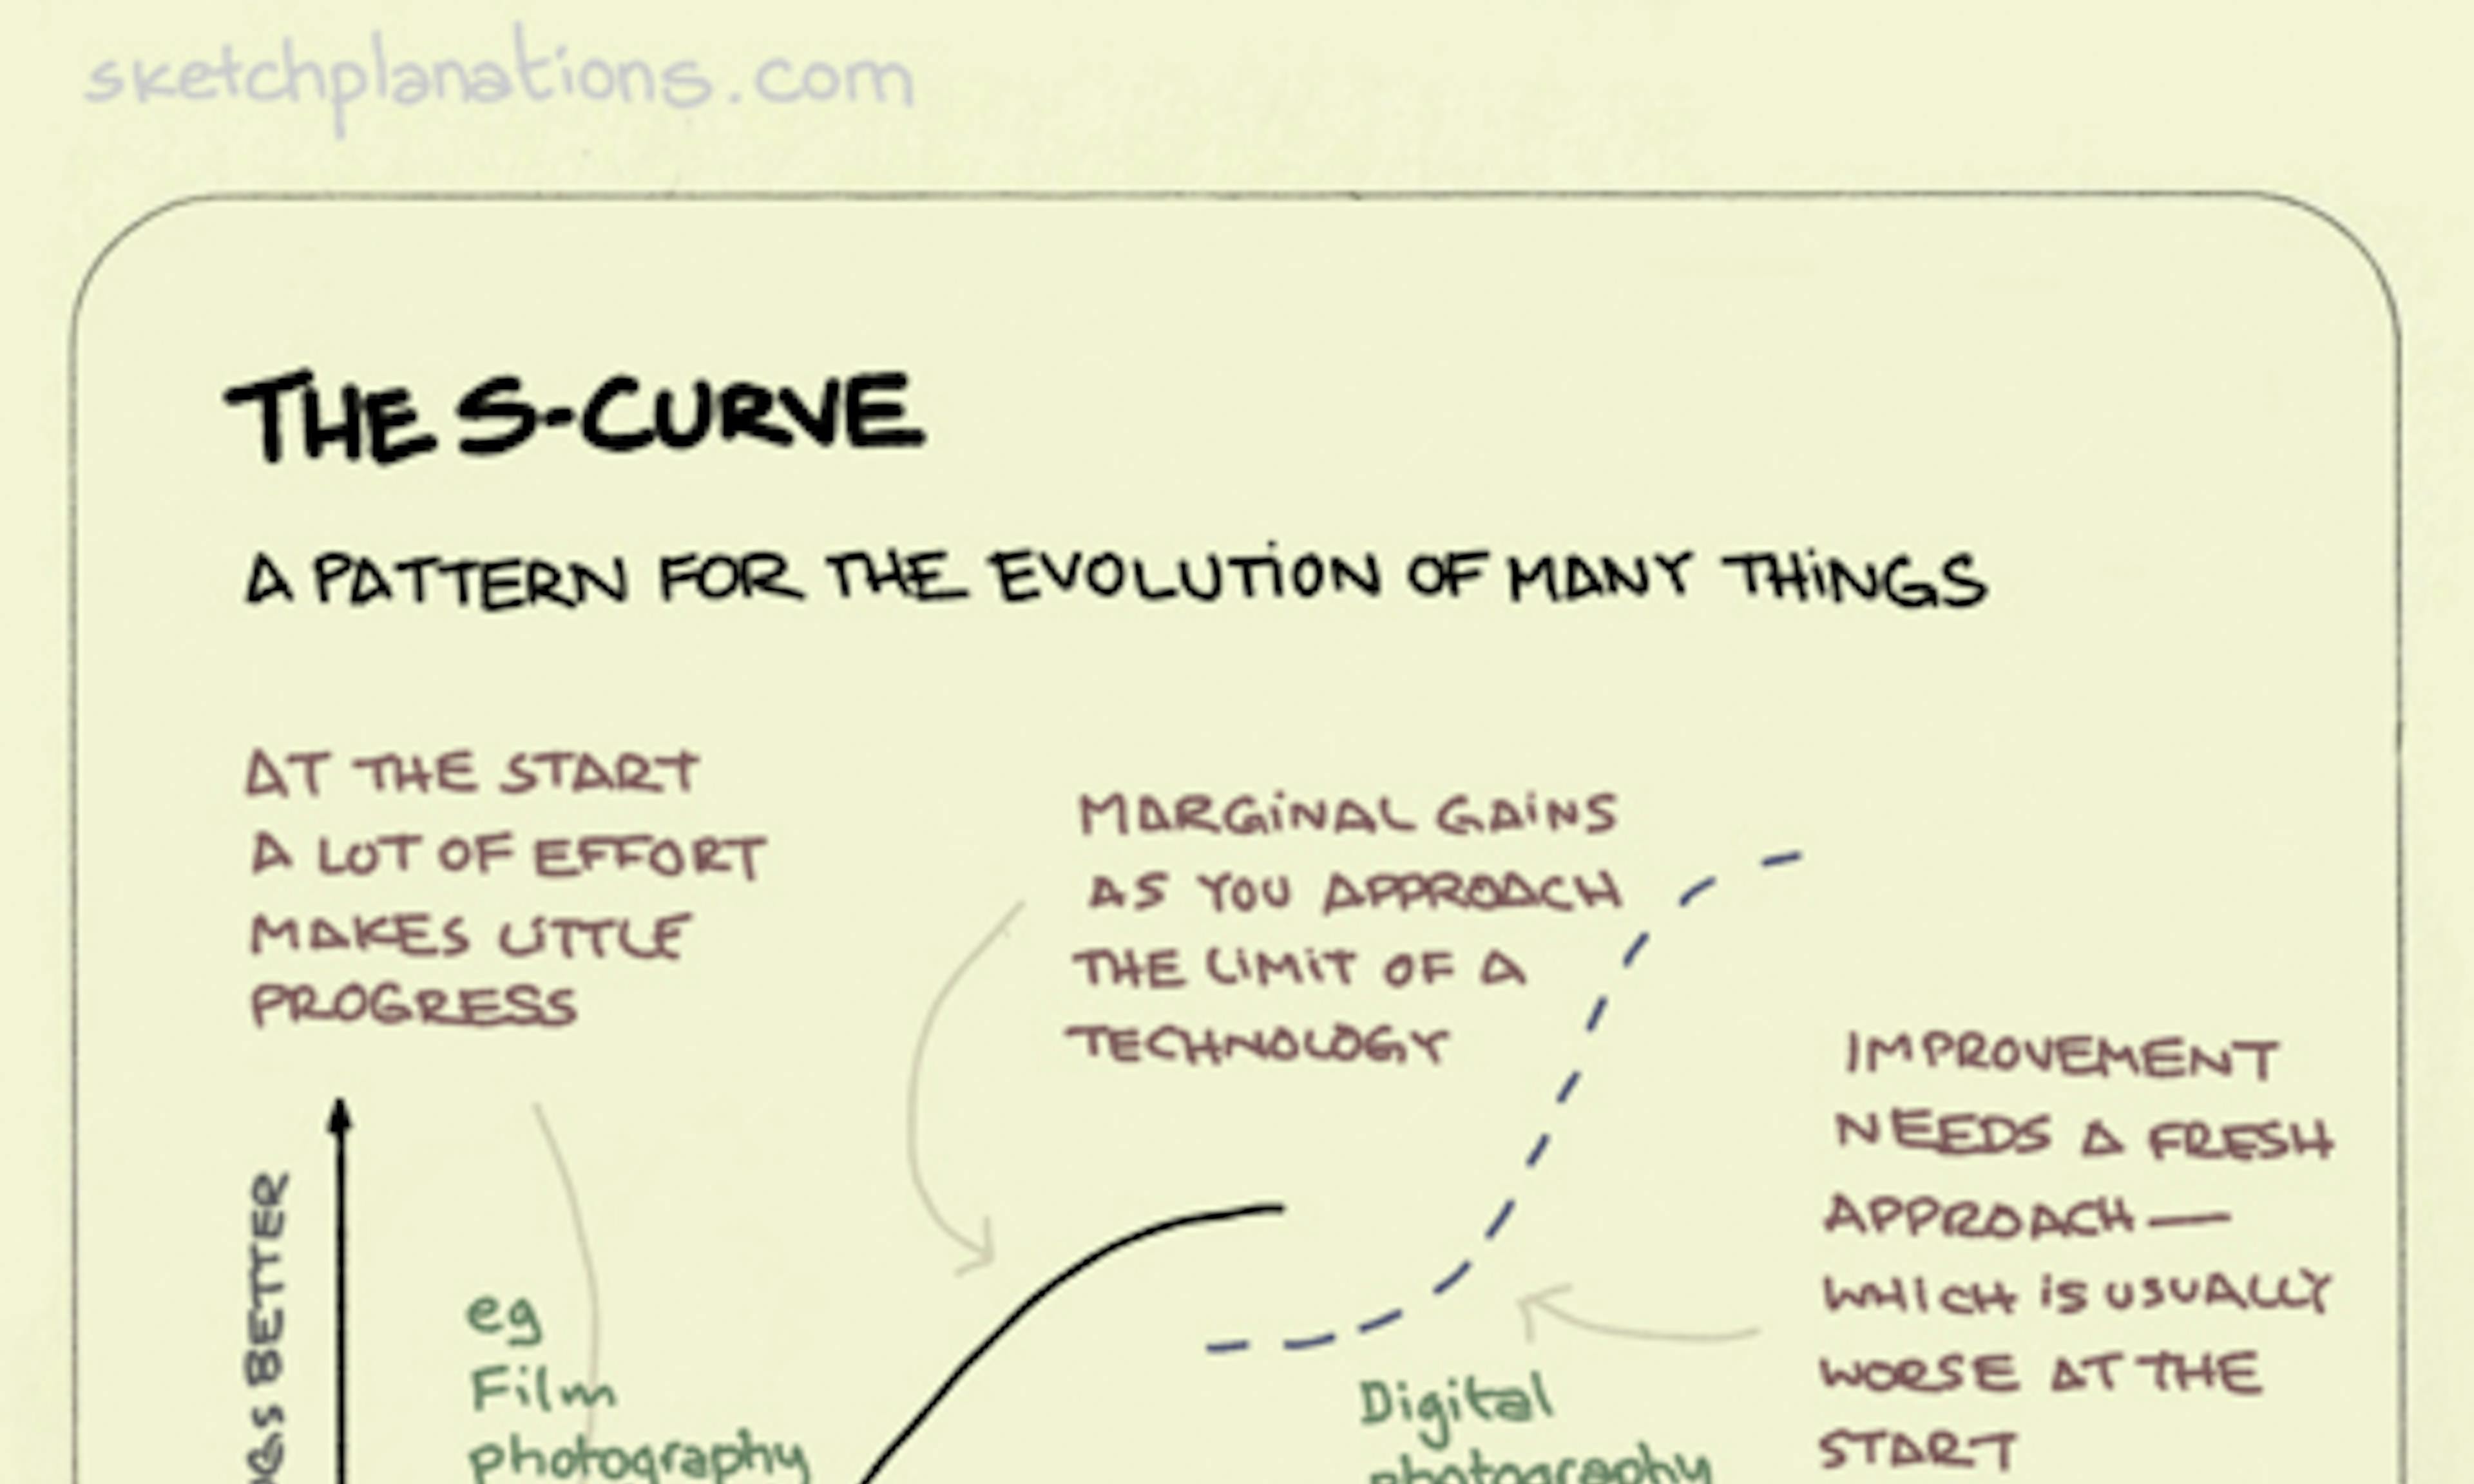 sketchplanations.com
THE S-CURVE
A PATTERN FOR THE EVOLUTION OF MANY THINGS
AT THE START
A LOT OF EFFORT
MAKES LITTLE
PROGRESS
MARGINAL GAINS
AS YOU APPROACH
THE LIMIT OF A
TECHNOLOGY
IMPROVEMENT
NEEDS A FRESH
APPROACH—
WHICH IS USUALLY
WORSE AT THE
START
BETTER
eg
Film
photography
Digital
photography